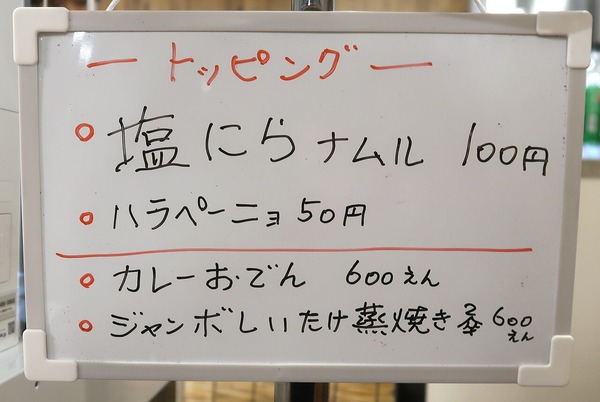 ートッピングー
塩にらナムル 100円
ハラペーニョ50円
カレーおでん 600えん
ジャンボしいたけ蒸焼き 600えん